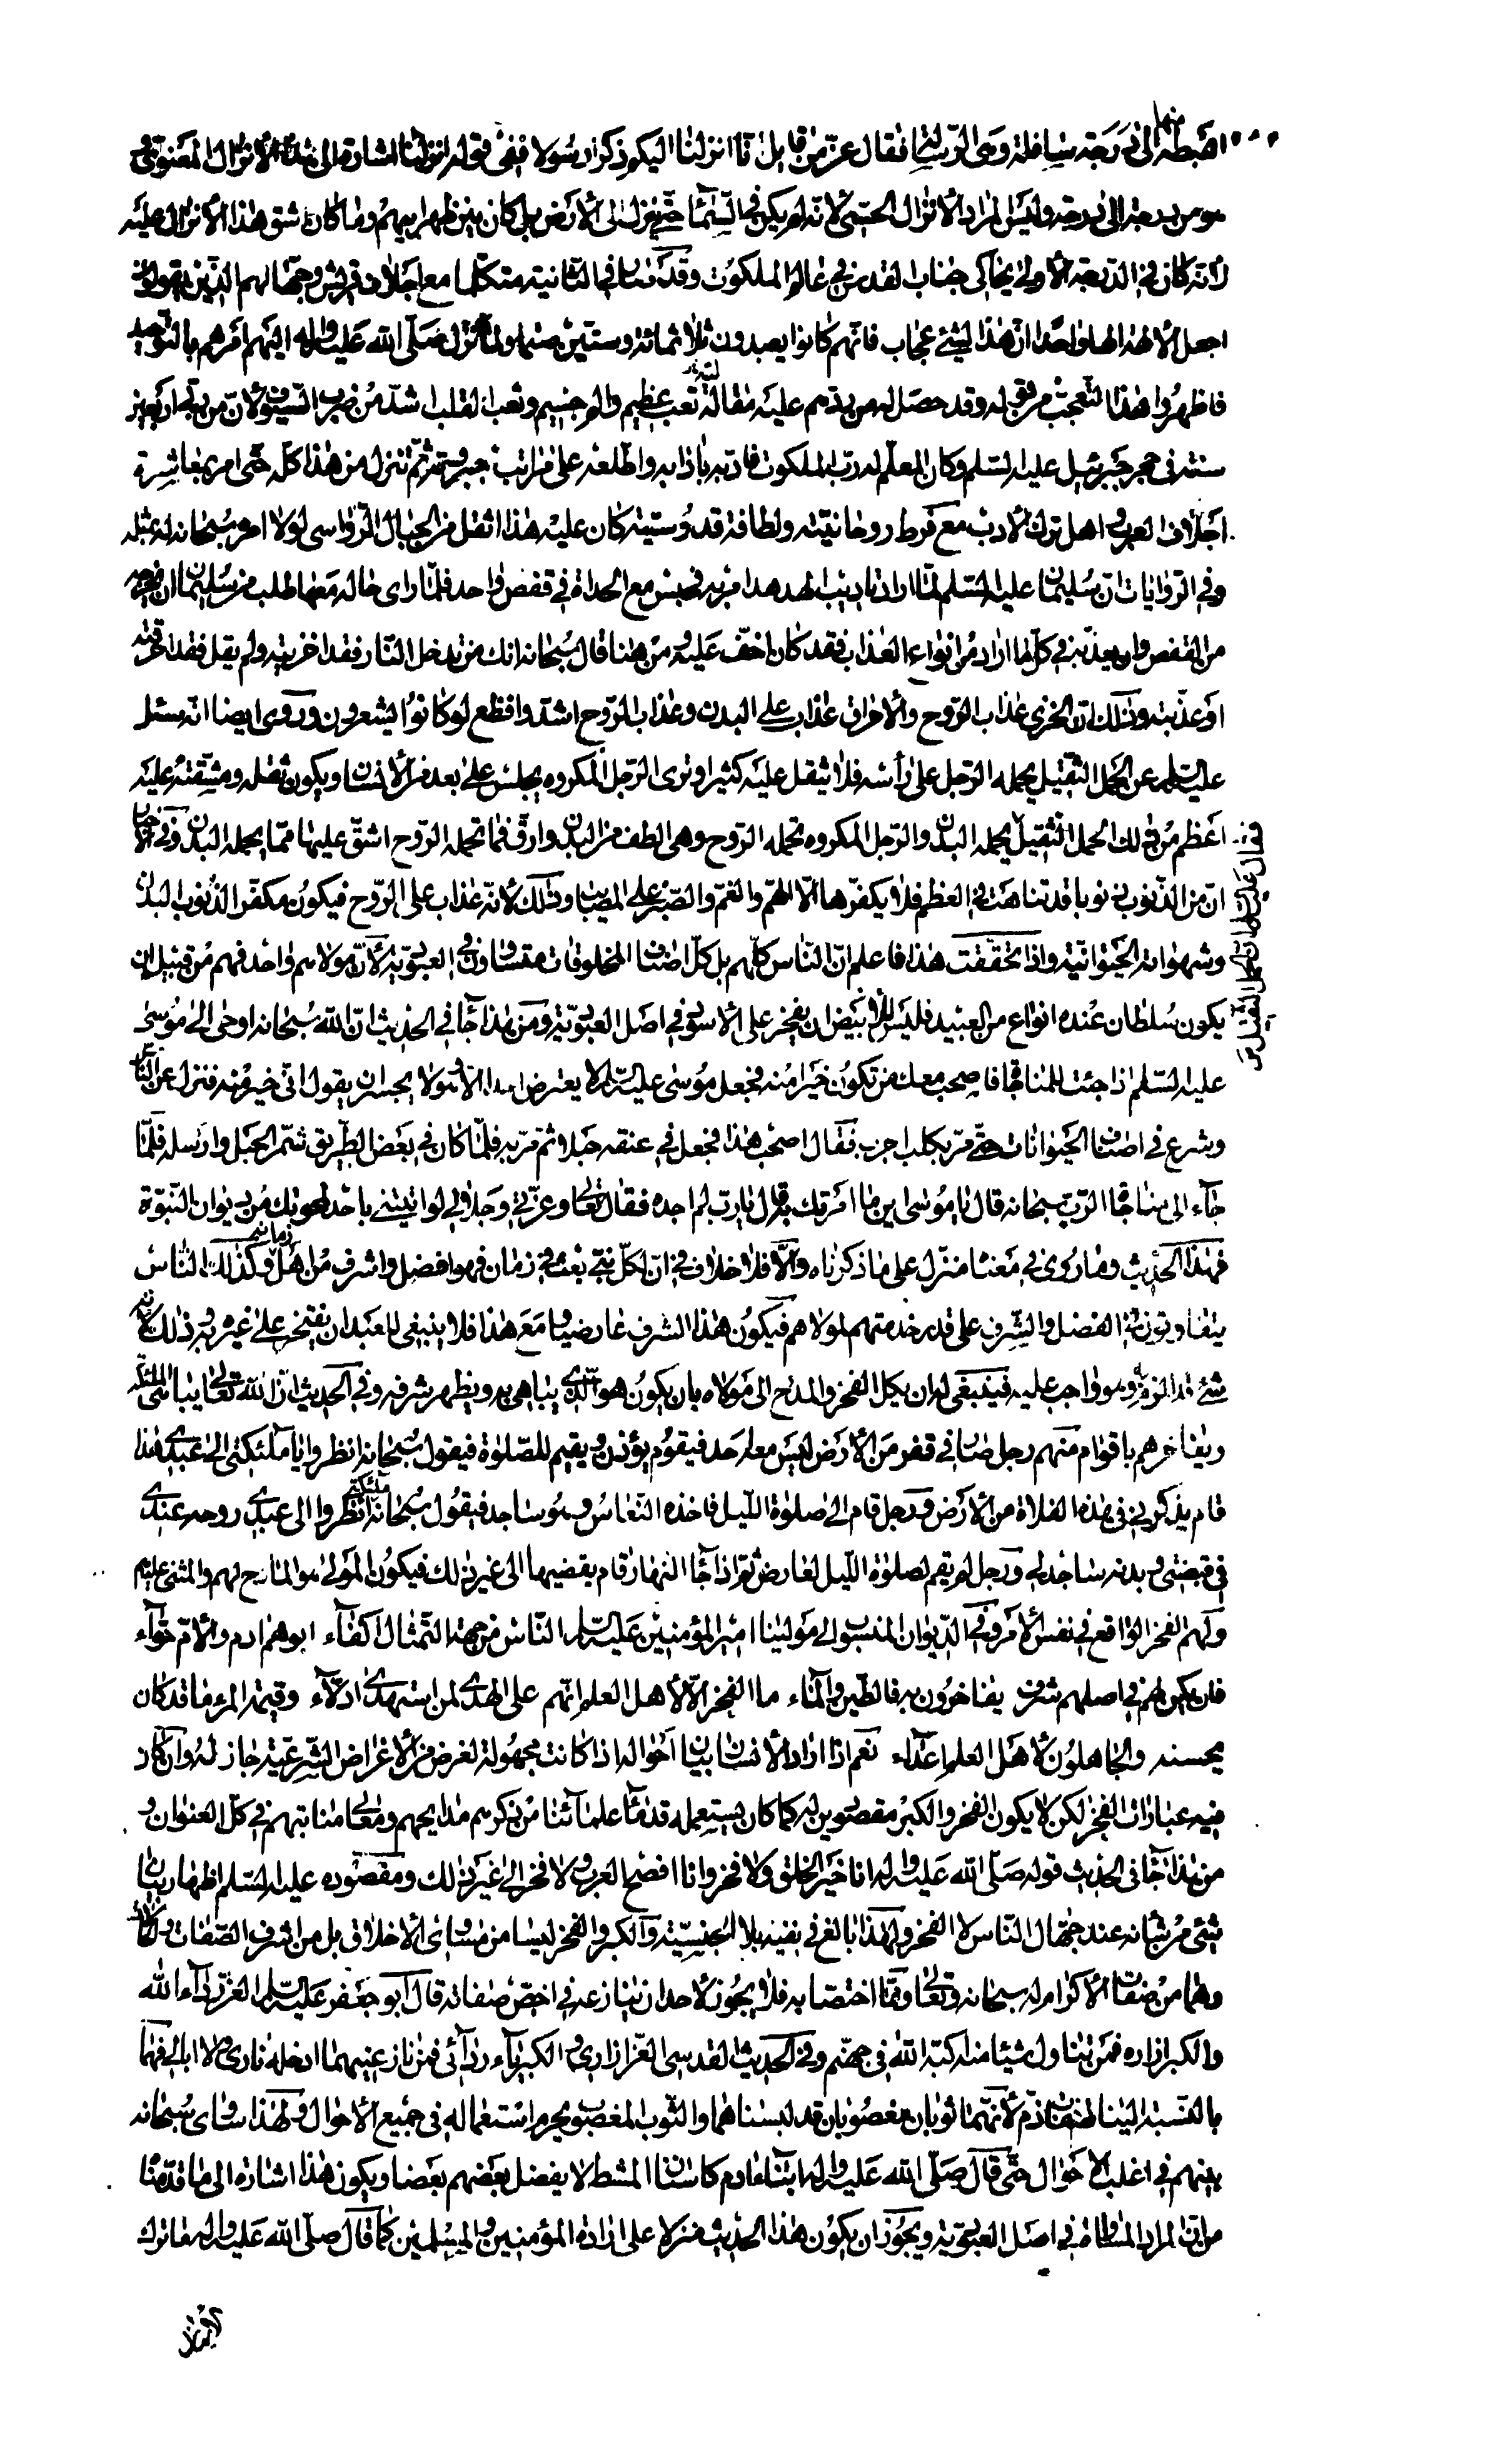 اهبطه منها الى درجة سافلة وهى الرسالة فقال عز من قائل انا انزلنا اليكم ذكرا رسولا ففى قوله انزلنا اشارة الى هذا الانزال المعنوى
هو من درجة الى درجة وليس المراد الانزال الحسى لانه لم يكن فى السماء حتى ينزل الى الارض بل كان بين ظهرانيهم وما كان اشق هذا الانزال عليه
لانه كان فى الدرجة الاولى يحاكى جناب القدس فى عالم الملكوت وقد صار فى الثانية متكلما مع اجلاف قريش وجهالهم الذين يقولون
اجعل الالهة الها واحدا ان هذا لشئ عجاب فانهم كانوا يعبدون ثلاثمائة وستين صنما ولما نزل صلى الله عليه واله اليهم امرهم بالتوحيد
فاظهروا هذا التعجب من قوله وقد حصل له من ردهم عليه مقالته تعب عظيم والم جسيم وتعب القلب اشد من ضرب السيوف لان من ربى اربعين
سنة فى حجر جبرئيل عليه السلم وكان المعلم له رب الملكوت فادبه بادابه واطلعه على مراتب جبروته ثم تنزل من هذا كله حتى امر بمعاشرة
اجلاف العرب اهل ترك الادب مع فرط روحانيته ولطافة قدوسيته كان عليه هذا اثقل من الجبال الرواسى لولا امره سبحانه له بمثله
وفى الروايات ان سليمان عليه السلم لما اراد تاديب الهدهد امر به فحبس مع الحداة فى قفص واحد فلما راى حاله معها طلب من سليمان ان يخرجه
من القفص وان يعذبه فى كل ما اراد من انواع العذاب فقد كان اخف عليه ومن هنا قال سبحانه انك من تدخل النار فقد اخزيته ولم يقل فقد احرقته
او عذبته وذلك ان الخزى عذاب الروح والاحراق عذاب على البدن وعذاب الروح اشد وافظع لو كانوا يشعرون وروى ايضا انه سئل
عليه السلم عن الحمل الثقيل يحمله الرجل على رأسه فلا يثقل عليه كثيرا وترى الرجل المكروه يجلس على بعد من الانسان ويكون ثقله ومشقته عليه
اعظم من ذلك الحمل الثقيل يحمله البدن والرجل المكروه تحمله الروح وهى الطف من البدن وارق فما تحمله الروح اشق عليها مما يحمله البدن وفى الاخبار
فقال عليه السلم ان الحمل الثقيل
ان من الذنوب ذنوبا قد تناهت فى العظم فلا يكفرها الا الهم والغم والصبر على المصايب وذلك لانه عذاب على الروح فيكون مكفرا لذنوب البدن
وشهواته الحيوانية واذا تحققت هذا فاعلم ان الناس كلهم بل كل اصناف المخلوقات متساوون فى العبودية لان مولاهم واحد فهم من قبيل ان
يكون سلطان عنده انواع من العبيد فليس للابيض ان يفخر على الاسود فى اصل العبودية ومن هذا جاء فى الحديث ان الله سبحانه اوحى الى موسى
عليه السلم اذا جئت للمناجاة فاصحب معك من تكون خيرا منه فجعل موسى عليه السلم لا يعترض احدا الا وهو لا يجسر ان يقول انى خير منه فنزل عن الناس
وشرع فى اصناف الحيوانات حتى مر بكلب اجرب فقال اصحب هذا فجعل فى عنقه حبلا ثم مر به فلما كان فى بعض الطريق شمر الحبل وارسله فلما
جاء الى مناجاة الرب سبحانه قال يا موسى اين ما امرتك به قال يا رب لم اجده فقال تعالى وعزتى وجلالى لو اتيتنى باحد لمحوتك من ديوان النبوة
فهذا الحديث وما روى فى معناه منزل على ما ذكرناه والا فلا خلاف فى ان كل نبى بعث فى زمان فهو افضل واشرف من اهل زمانه وكذلك الناس
يتفاوتون فى الفضل والشرف على قدر خدمتهم لمولاهم فيكون هذا الشرف عارضيا ومع هذا فلا ينبغى للعبد ان يفتخر على غيره به ذلك لانه
شئ قد لزمه وهو واجب عليه فينبغى له ان يكل الفخر والمدح الى مولاه بان يكون هو الذى يباهى به ويظهر شرفه وفى الحديث ان الله تعالى يباهى الملئكة
ويفاخرهم باقوام منهم رجل صار فى قفر من الارض ليس معه احد فيقوم يؤذن ويقيم للصلوة فيقول سبحانه انظروا يا ملئكتى الى عبدى هذا
قام يذكرنى فى هذه الفلاة من الارض ورجل قام الى صلوة الليل فاخذه النعاس وهو ساجد فيقول سبحانه ملئكتى انظروا الى عبدى روحه عندى
فى قبضتى وبدنه ساجد لى ورجل لم يقم لصلوة الليل لعارض ثم اذا جاء النهار قام يقضيها الى غير ذلك فيكون المولى هو المادح لهم والمثنى عليهم
ولهم الفخر الواقع فى نفس الامر وفى الديوان المنسوب الى مولينا امير المؤمنين عليه السلم الناس من جهة التمثال اكفاء ابوهم ادم والام حواء
فان يكن لهم فى اصلهم شرف يفاخرون به فالطين والماء ما الفخر الا لاهل العلم انهم على الهدى لمن استهدى ادلاء وقيمة المرء ما قد كان
يحسنه والجاهلون لاهل العلم اعداء نعم اذا اراد الانسان بيان احواله اذا كانت مجهولة لغرض من الاغراض الشرعية جاز له وان كان
فيه عبارات الفخر لكن لا يكون الفخر والكبر مقصودين له كما كان يستعمله قدماء علمائنا من ذكرهم مدايحهم ومعالى مناقبهم فى كل العنوان و
من هذا جاء فى الحديث قوله صلى الله عليه واله انا خير الخلق ولا فخر وانا افصح العرب ولا فخر الى غير ذلك ومقصوده عليه السلم اظهار بيان
شئ من شأنه عند جهال الناس لا الفخر ولهذا بالغ فى نفيه بلا الجنسية والكبر والفخر ليسا من مساوى الاخلاق بل من اشرف الصفات
وهما من صفات الاكرام له سبحانه وتعالى ومما اختصا به فلا يجوز لاحد ان ينازعه فى اخص صفاته قال ابو جعفر عليه السلم العز رداء الله
والكبر ازاره فمن تناول شيئا منه اكبه الله فى جهنم وفى الحديث القدسى العز ازارى والكبرياء ردائى فمن نازعنيهما ادخله نارى ولا ابالى فهما
بالنسبة الينا صفتا ذم لانهما ثوبان مغصوبان قد لبسناهما والثوب المغصوب يحرم استعماله فى جميع الاحوال ولهذا ساوى سبحانه
بينهم فى اغلب الاحوال حتى قال صلى الله عليه واله ابناء ادم كاسنان المشط لا يفضل بعضهم بعضا ويكون هذا اشارة الى ما قدمنا
من ان المراد المساواة فى اصل العبودية ويجوز ان يكون هذا الحديث منزلا على ارادة المؤمنين والمسلمين كما قال صلى الله عليه واله